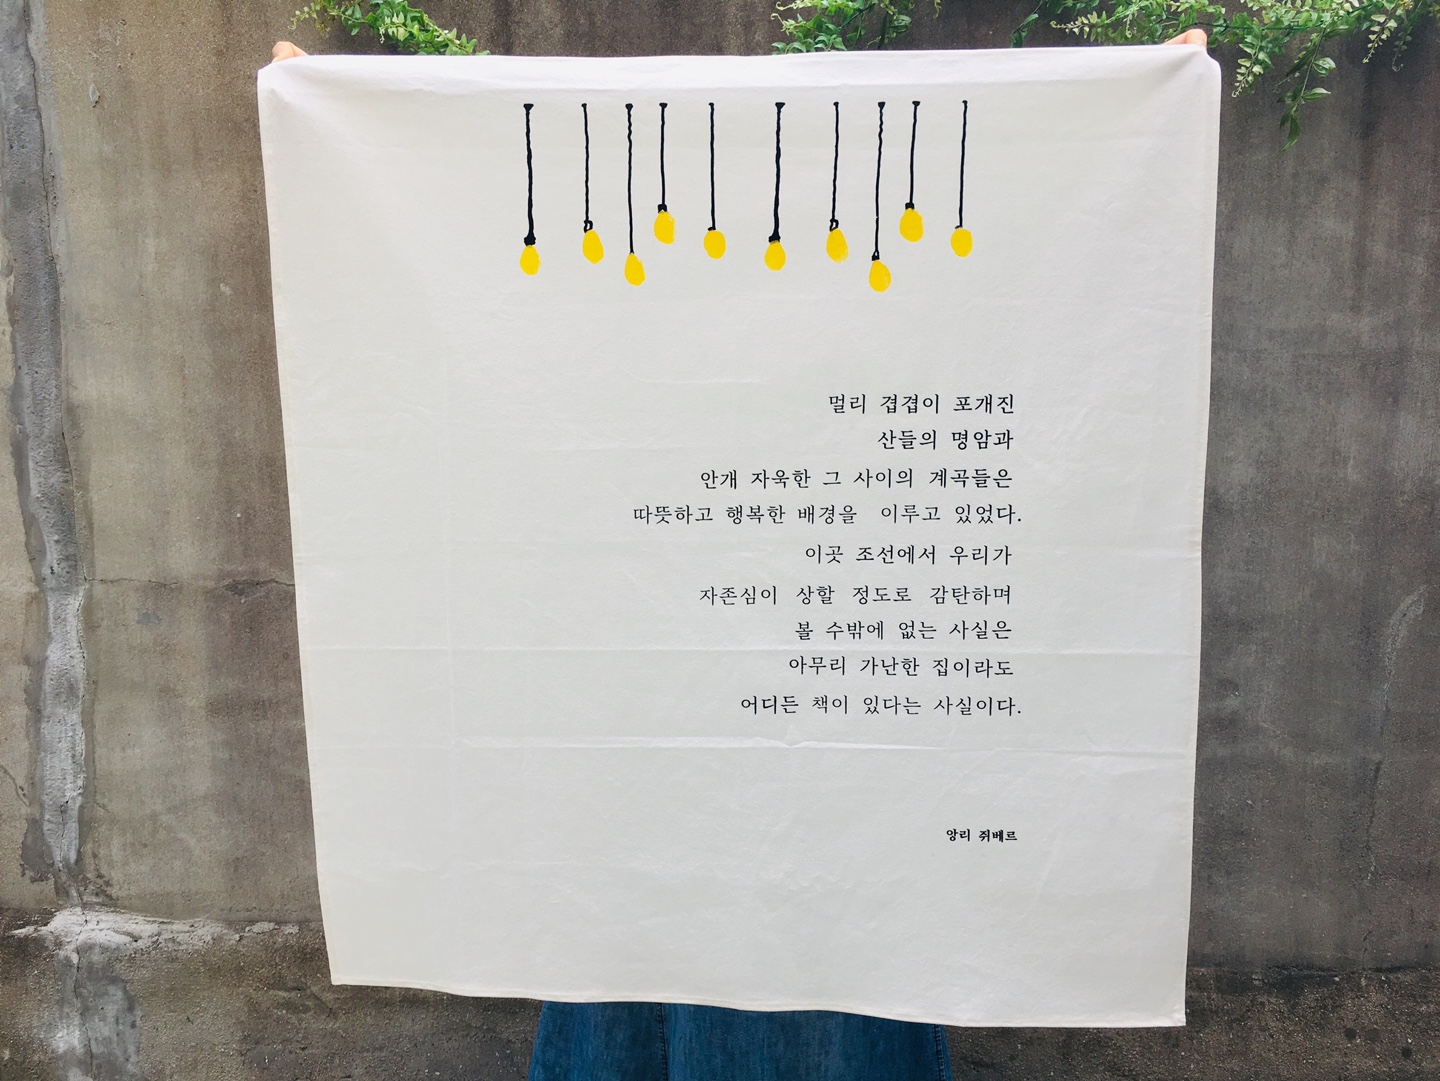 멀리 겹겹이 포개진
산들의 명암과
안개 자욱한 그 사이의 계곡들은
따뜻하고 행복한 배경을 이루고 있었다.
이곳 조선에서 우리가
자존심이 상할 정도로 감탄하며
볼 수밖에 없는 사실은
아무리 가난한 집이라도
어디든 책이 있다는 사실이다.
앙리 쥐베르